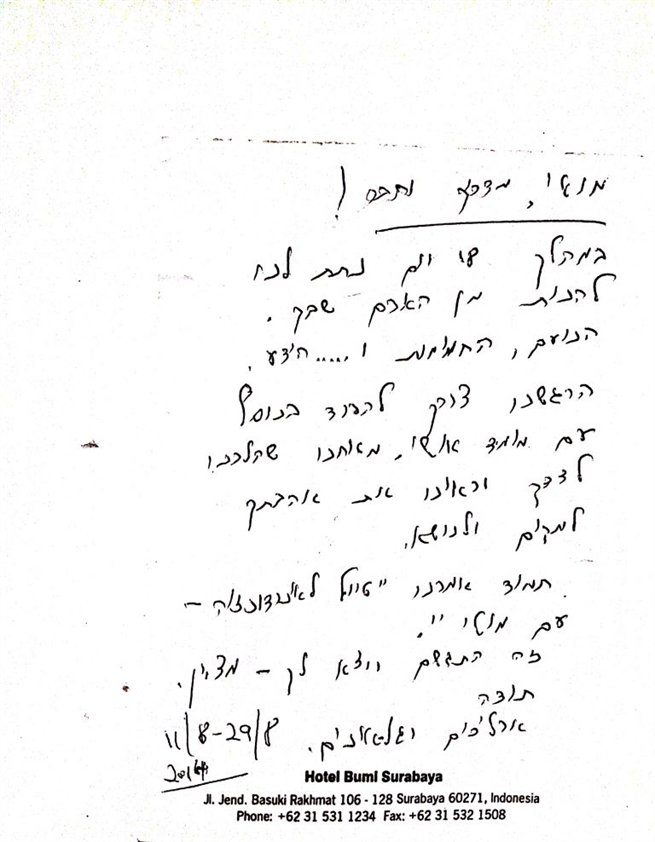 מוטי, מדריך וחבר!
במהלך 18 יום נתת לנו
להנות מן האדם שבך.
הנועם, החמימות ו.....הידע.
הרגשנו צורך להפרד בנוסף
עם מימד אישי. מאיתנו שהלכנו
לצדך וראינו את אהבתך
למקום ולנושא.
תמיד אמרנו "טיול לאינדונזיה -
עם מוטי".
זה התגשם ויצא לך - מצוין.
תודה
11/8-29/8
2014
Hotel Bumi Surabaya
Jl. Jend. Basuki Rakhmat 106 - 128 Surabaya 60271, Indonesia
Phone: +62 31 531 1234 Fax: +62 31 532 1508